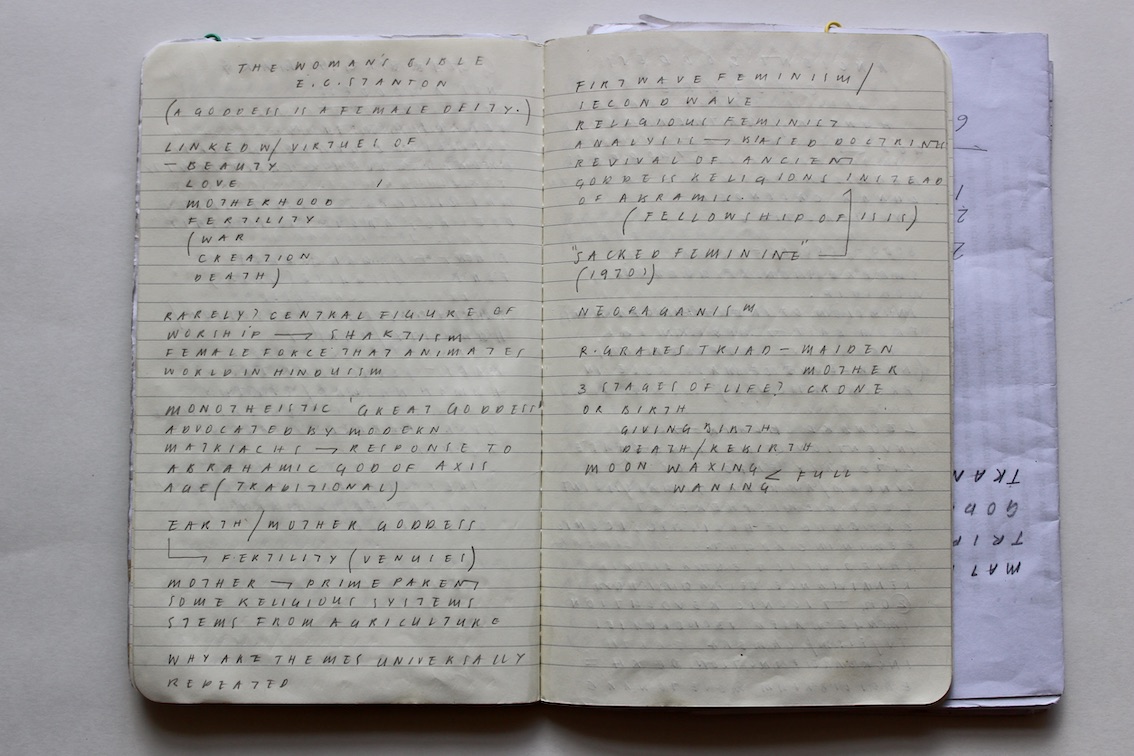 THE WOMAN'S BIBLE
E.C. STANTON
(A GODDESS IS A FEMALE DEITY.)
LINKED W/ VIRTUES OF
- BEAUTY
LOVE
MOTHERHOOD
FERTILITY
(WAR
CREATION
DEATH)
RARELY? CENTRAL FIGURE OF
WORSHIP → SHAKTISM
FEMALE FORCE THAT ANIMATES
WORLD IN HINDUISM
MONOTHEISTIC 'GREAT GODDESS'
ADVOCATED BY MODERN
MATRIACHS → RESPONSE TO
ABRAHAMIC GOD OF AXIS
AGE (TRADITIONAL)
EARTH/MOTHER GODDESS
↳ FERTILITY (VENUSES)
MOTHER → PRIME PARENT
SOME RELIGIOUS SYSTEMS
STEMS FROM AGRICULTURE
WHY ARE THEMES UNIVERSALLY
REPEATED
FIRTWAVE FEMINISM/
SECOND WAVE
RELIGIOUS FEMINIST
ANALYSIS → BIASED DOCTRINE
REVIVAL OF ANCIENT
GODDESS RELIGIONS INSTEAD
OF
(FELLOWSHIP OF ISIS)
"SACRED FEMININE"
(1970s)
NEOPAGANISM
R. GRAVES TRIAD - MAIDEN
MOTHER
3 STAGES OF LIFE? CRONE
OR BIRTH
GIVING BIRTH
DEATH/REBIRTH
MOON WAXING < FULL
WANING
6
1
2
2
MAT
TRIP
GOD
TRAN